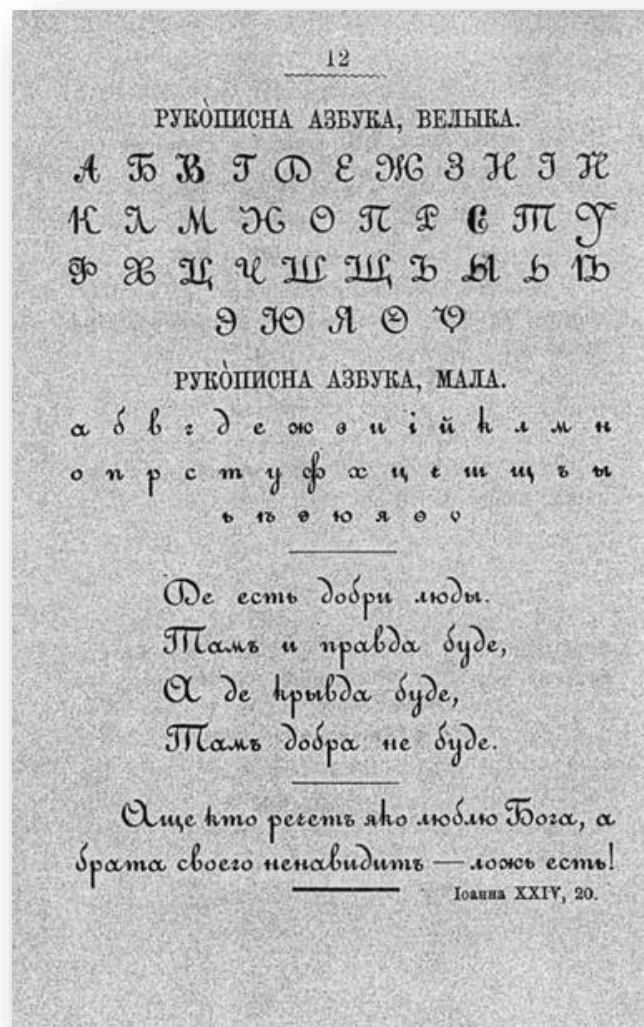 12
РУКО̀ПИСНА АЗБУКА, ВЕЛЫКА.
А Б В Г Д Е Ж З И І Й
К Л М Н О П Р С Т У
Ф Х Ц Ч Ш Щ Ъ Ы Ь Ѣ
Э Ю Я Ѳ Ѵ
РУКО̀ПИСНА АЗБУКА, МАЛА.
а б в г д е ж з и і й к л м н
о п р с т у ф х ц ч ш щ ъ ы
ь ѣ э ю я ѳ ѵ
Де есть добри люды.
Тамъ и правда буде,
А де крывда буде,
Тамъ добра не буде.
Аще кто речеть яко люблю Бога, а
брата своего ненавидить — ложь есть!
Іоанна XXIV, 20.